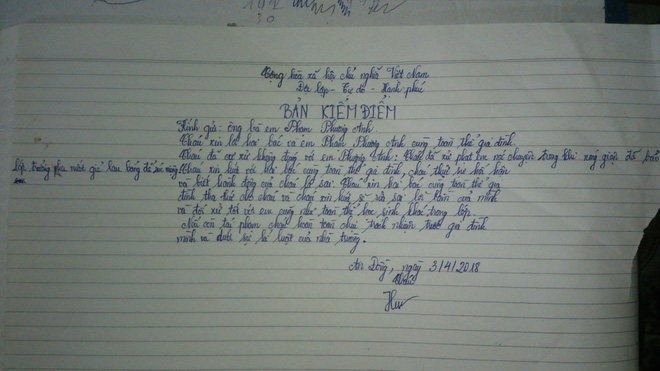 Cộng hòa xã hội chủ nghĩa Việt Nam
Độc lập - Tự do - Hạnh phúc
BẢN KIỂM ĐIỂM
Kính gửi: ông bà em Phạm Phương Anh.
Cháu xin lỗi hai bác và em Phạm Phương Anh cùng toàn thể gia đình.
Cháu đã cư xử không đúng với em Phương Anh: Cháu đã xử phạt em nói chuyện trong khi nóng giận đã bảo
lớp trưởng pha nước giẻ lau bảng để súc miệng. Cháu xin hứa với hai bác cùng toàn thể gia đình, cháu thật sự hối hận
và biết hành động của cháu là sai. Cháu xin hai bác cùng toàn thể gia
đình tha thứ cho cháu và cháu xin hứa sẽ sửa sai lỗi lầm của mình
và đối xử tốt với em cũng như toàn thể học sinh khác trong lớp.
Nếu còn tái phạm cháu hoàn toàn chịu trách nhiệm trước gia đình
mình và dưới sự kỉ luật của nhà trường.
An Đồng, ngày 3/4/2018
Cháu